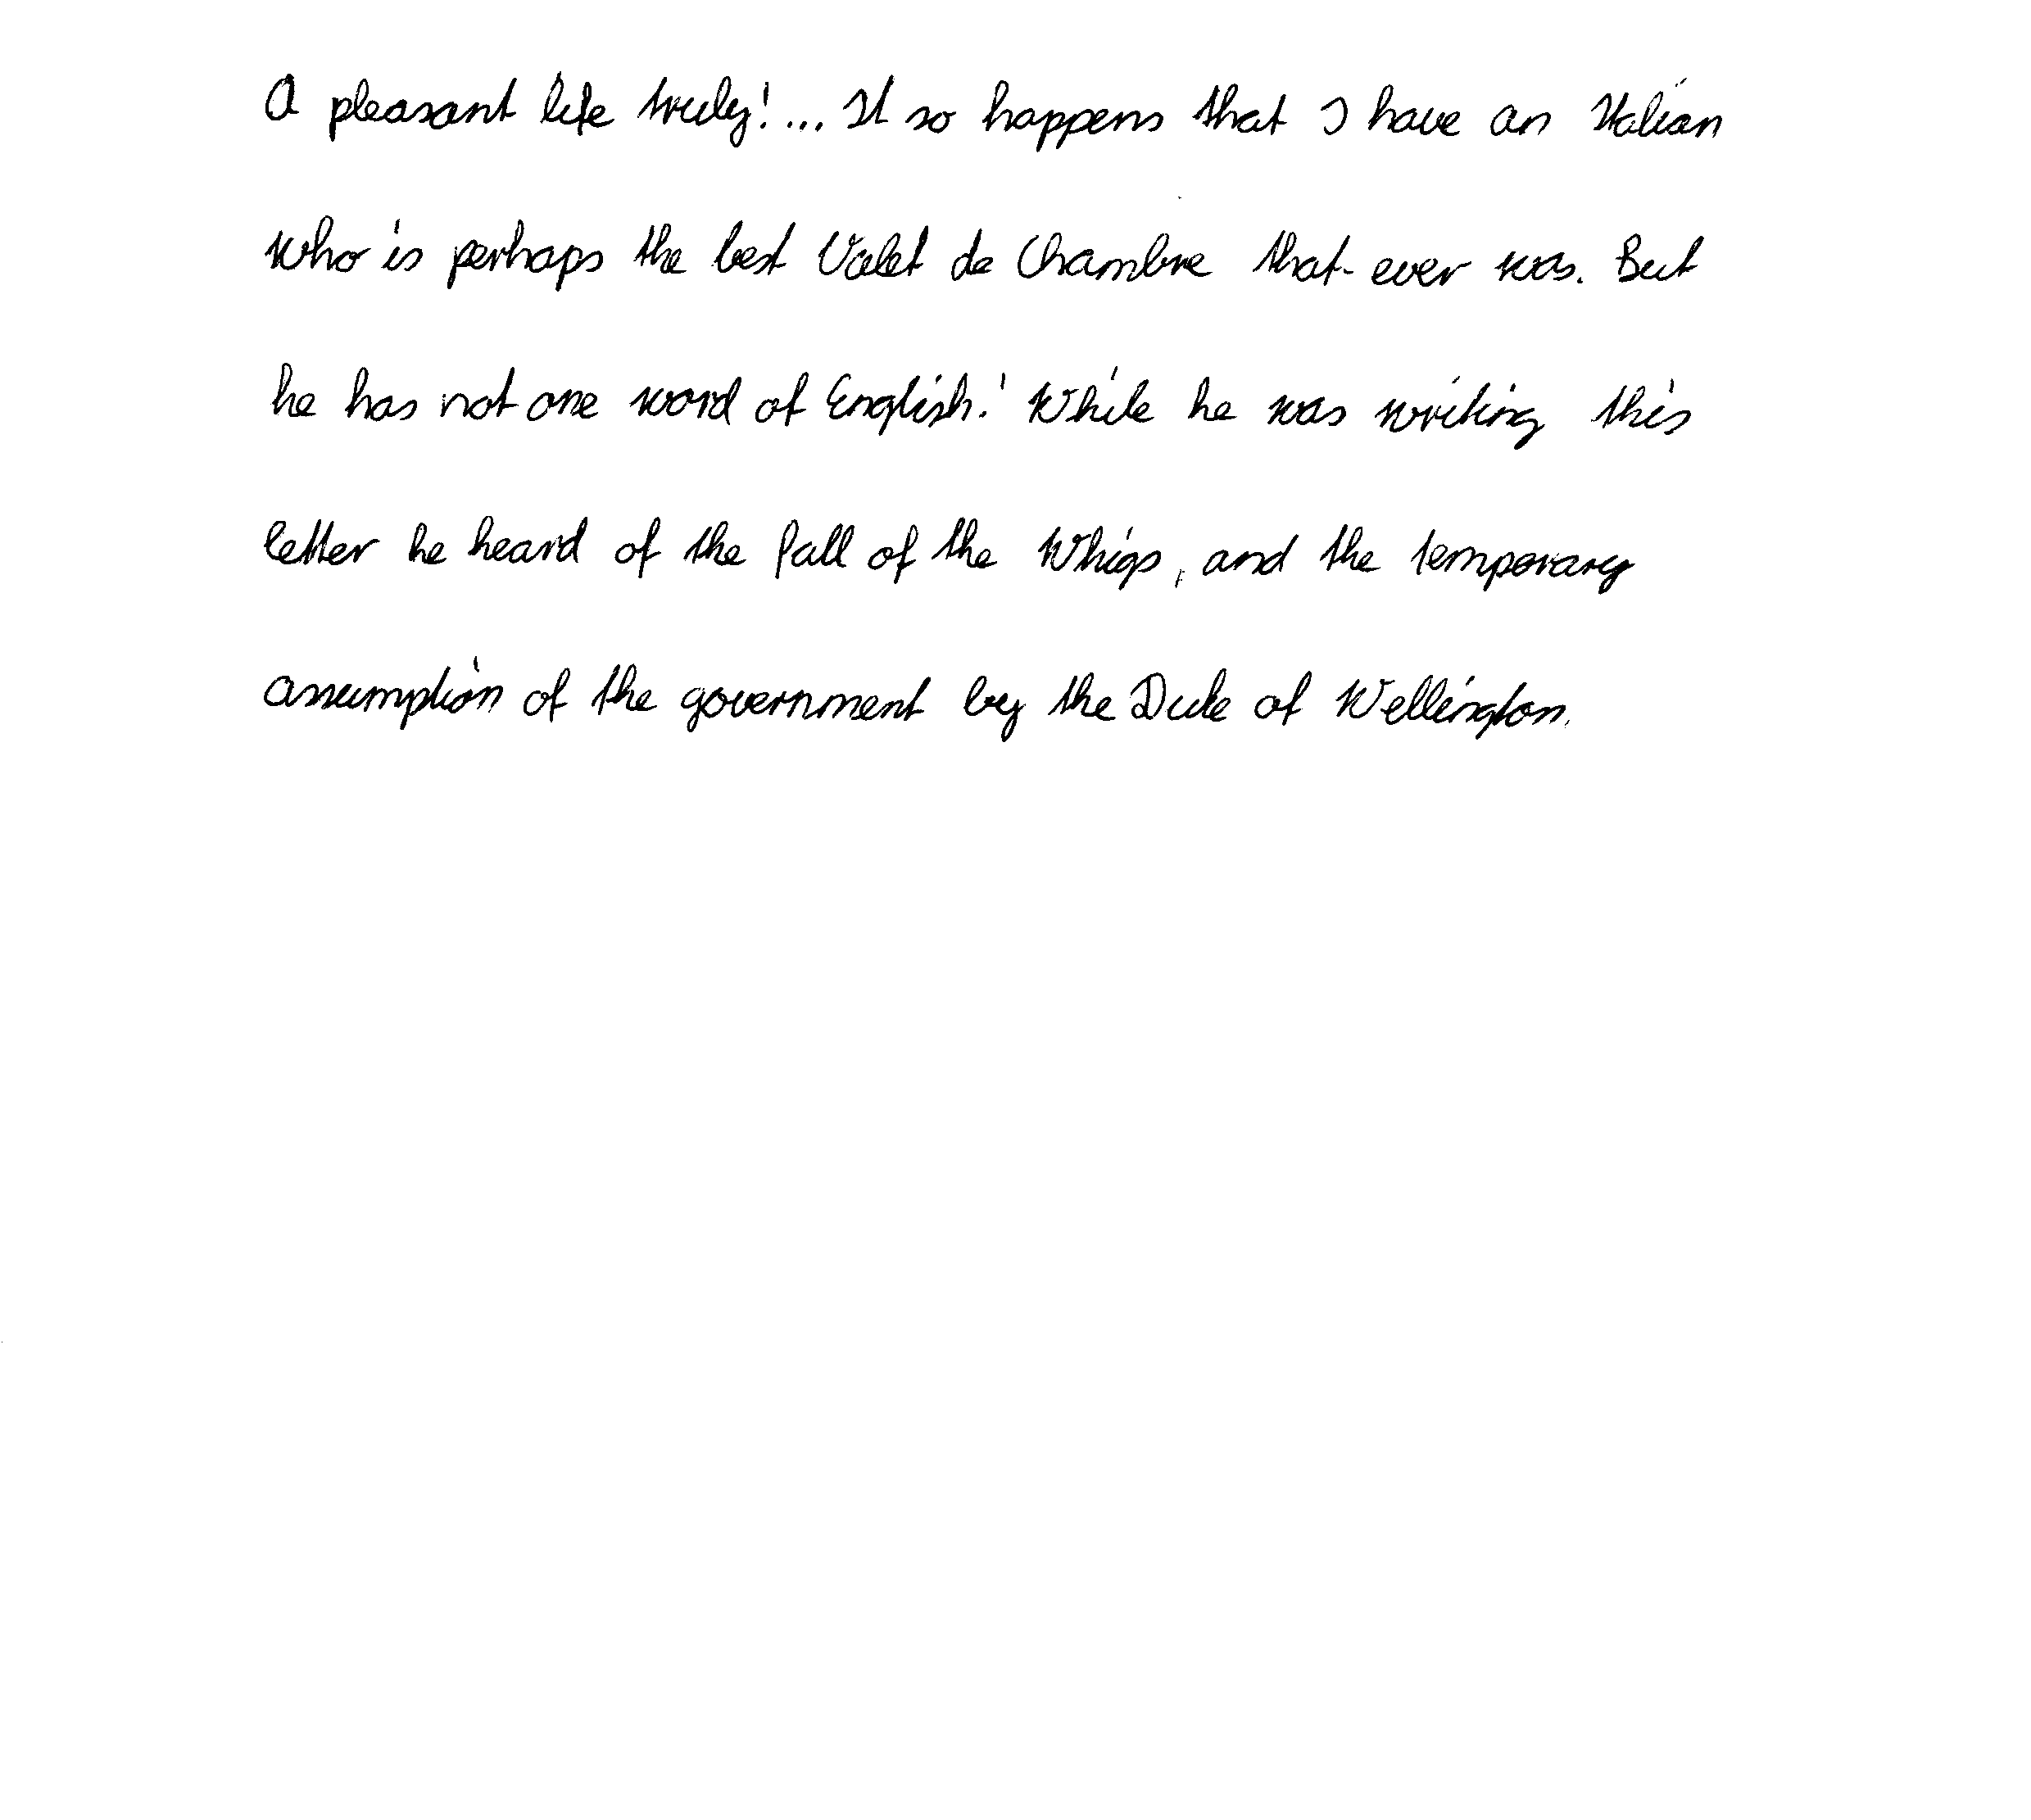 A pleasant life truly! ... It so happens that I have an Italian
who is perhaps the best Valet de Chambre that ever was. But
he has not one word of English.' While he was writing this
letter he heard of the fall of the Whigs, and the temporary
assumption of the government by the Duke of Wellington.